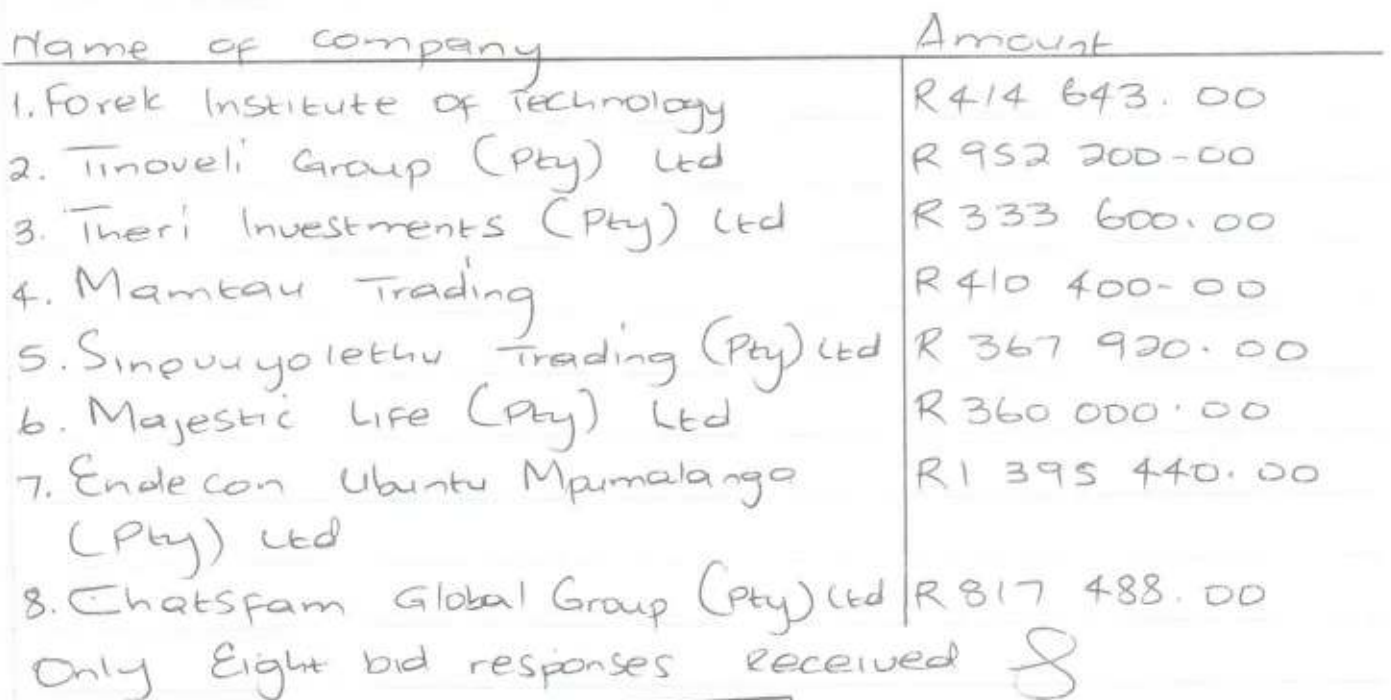 Name of company Amount
1. Forek Institute of Technology R414 643.00
2. Tinoveli Group (Pty) Ltd R 952 200-00
3. Theri Investments (Pty) Ltd R 333 600.00
4. Mamtau Trading R 410 400-00
5. Sinovuyolethu Trading (Pty) Ltd R 367 920.00
6. Majestic Life (Pty) Ltd R 360 000.00
7. Endecon Ubuntu Mpumalanga R1 395 440.00
(Pty) Ltd
8. Chatsfam Global Group (Pty) Ltd R 817 488.00
Only Eight bid responses Received 8